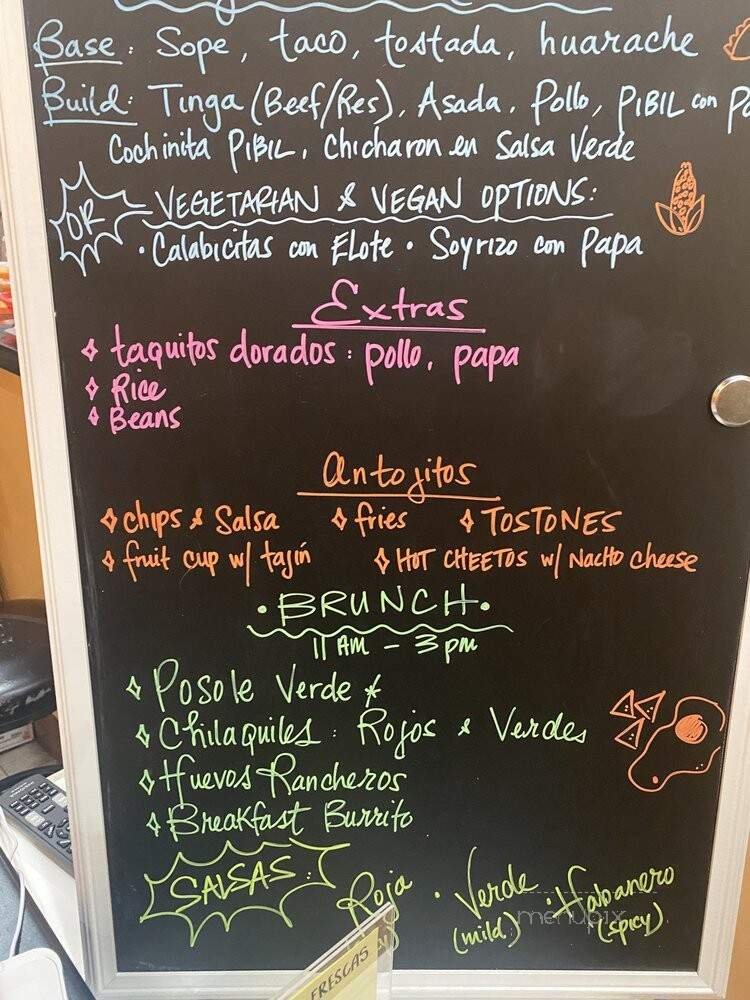 Base: Sope, taco, tostada, huarache
Build: Tinga (Beef/Res), Asada, Pollo, PIBIL con
Cochinita PIBIL, Chicharon en Salsa Verde
OR VEGETARIAN & VEGAN OPTIONS:
• Calabicitas con Elote • Soyrizo con Papa
Extras
taquitos dorados: pollo, papa
Rice
Beans
Antojitos
chips & Salsa fries TOSTONES
fruit cup w/ tajin HOT CHEETOS w/ Nacho Cheese
• BRUNCH •
11 AM - 3 pm
Posole Verde *
Chilaquiles: Rojos & Verdes
Huevos Rancheros
Breakfast Burrito
SALSAS: Roja • Verde • Habanero
(mild) (spicy)
menupix
FRESCAS